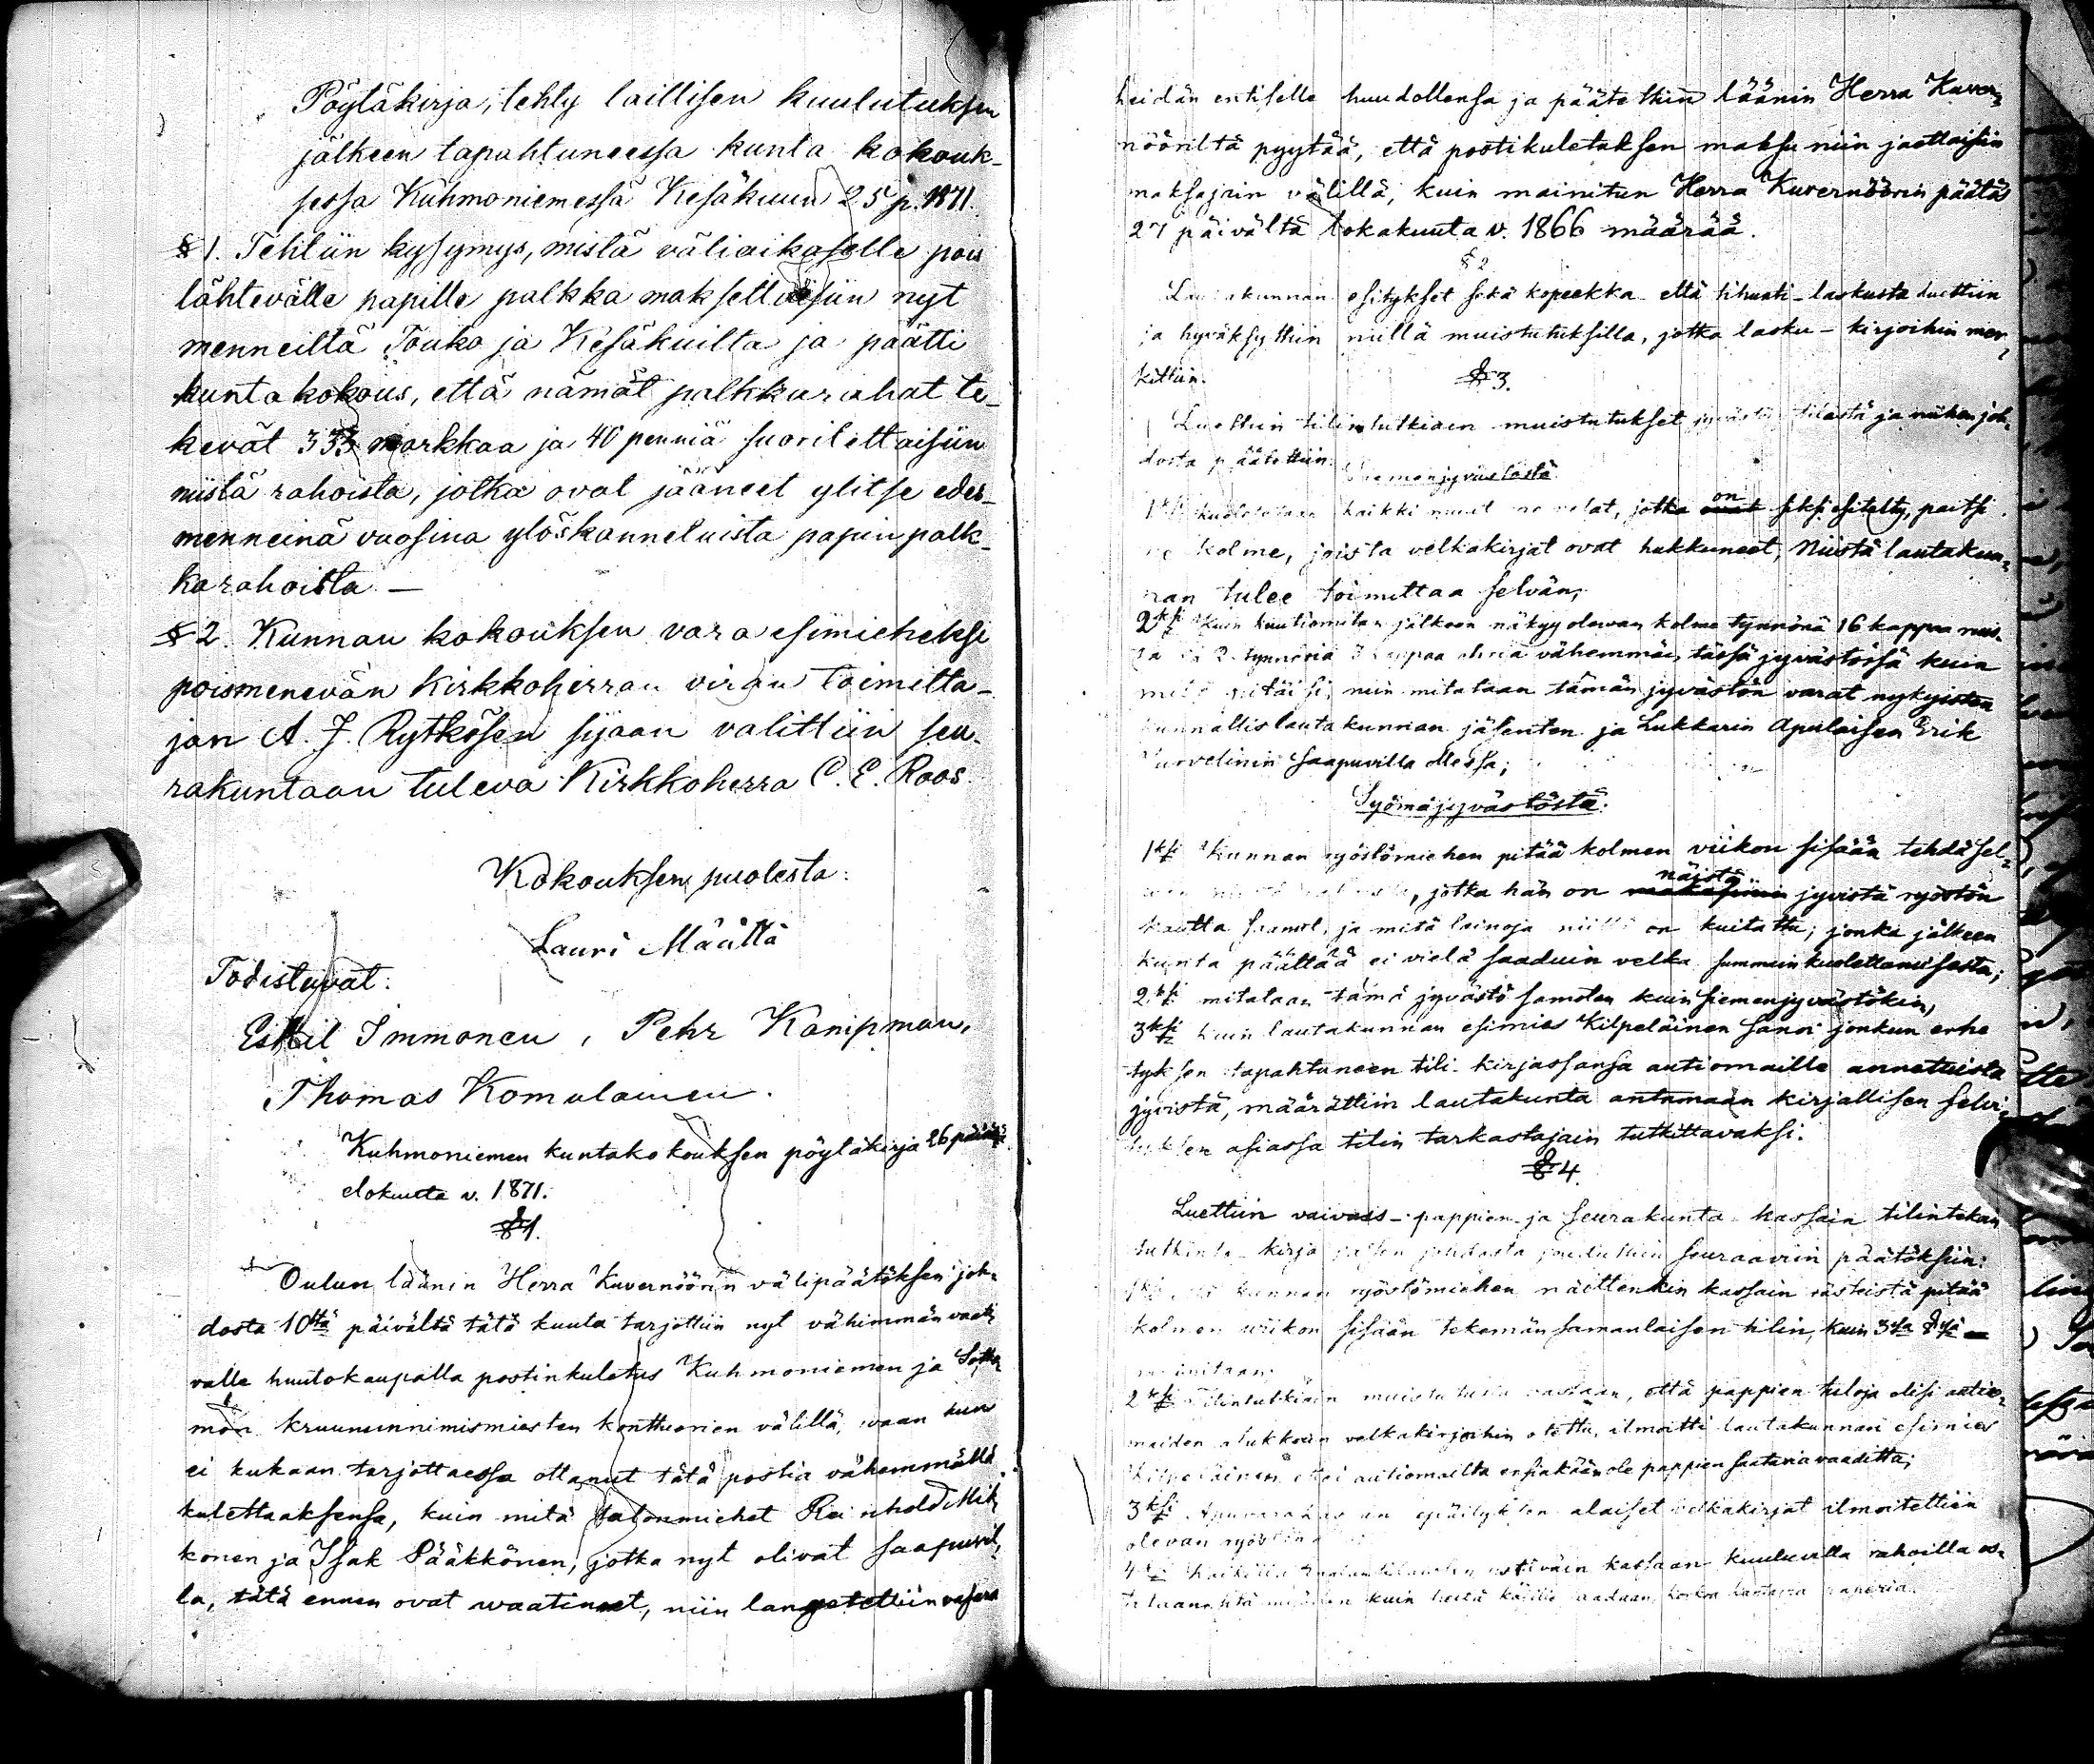 Pöytäkirja, tehty laillisen kuulutuksen
jälkeen tapahtuneessa kunta kokouk-
sessa Kuhmoniemessä Kesäkuun 25 p. 1871.
§ 1. Tehtiin kysymys, mistä väliaikaselle pois
lähtevälle papille palkka maksettaisiin nyt
menneiltä Touko ja Kesäkuilta ja päätti
kunta kokous, että nämät palkkarahat te-
kevät 333 markkaa ja 40 penniä suoritettaisiin
niistä rahoista, jotka ovat jääneet ylitse edes-
menneinä vuosina ylöskanneluista papin palk-
karahoista —
§ 2. Kunnan kokouksen vara esimieheksi
poismenevän Kirkkoherran viran toimitta-
jan A. J. Rytkösen sijaan valittiin seu-
rakuntaan tuleva Kirkkoherra C. E. Roos.
Kokouksen puolesta:
Lauri Määttä
Todistavat:
Eskil Immonen, Pehr Kanipman,
Thomas Komulainen.
Kuhmoniemen kuntakokouksen pöytäkirja 26 päivää
elokuuta v. 1871.
§ 1.
Oulun läänin Herra Kuvernöörin välipäätöksen joh-
dosta 10ttä päivältä tätä kuuta tarjottiin nyt vähimmän vaati-
valle huutokaupalla postinkuletus Kuhmoniemen ja Sotka-
mon kruununnimismiesten konttuorien välillä, waan kun
ei kukaan tarjottaessa ottanut tätä postia vähemmällä
kulettaaksensa, kuin mitä talonmiehet Reinhold Mik-
konen ja Isak Pääkkönen, jotka nyt olivat saapuvil-
la, tätä ennen ovat waatineet, niin langetettiin vasara
heidän entiselle huudollensa ja päätettiin läänin Herra Kuver-
nööriltä pyytää, että postikuletuksen maksu niin jaettaisiin
maksajain välillä, kuin mainitun Herra Kuvernöörin päätös
27 päivältä lokakuuta v. 1866 määrää.
§ 2
Lautakunnan esitykset sekä kopeekka- että tihunti-laskusta luettiin
ja hyväksyttiin niillä muistutuksilla, jotka lasku-kirjoihin mer-
kittiin.
§ 3.
Luettiin tilintutkiain muistutukset jyvästön tilastä ja niiden joh-
dosta päätettiin:
Siemenjyvästöstä
1ksi kuoletetaan kaikki muut ne velat, jotka on seksi esitelty, paitsi
ne kolme, joista velkakirjat ovat hukkuneet, Niistä lautakun-
nan tulee toimittaa selvän;
2ksi Kuin kuutiomitan jälkeen näkyy olevan kolme tynnöriä 16 kappaa ruis-
ta ja 2 tynnöriä 3 kappaa ohria vähemmän, tässä jyvästössä kuin
mitä pitäisi, niin mitataan tämän jyvästön varat nykyisten
kunnallislautakunnan jäsenten ja Lukkarin Apulaisen Erik
Turvelinin saapuvilla ollessa;
Syömäjyvästöstä:
1ksi Kunnan ryöstömiehen pitää kolmen viikon sisään tehdä sel-
, jotka hän on näistä jyvistä ryöstön
kautta saanut, ja mitä lainoja niillä on kuitattu; jonka jälkeen
kunta päättää ei vielä saaduin velka summain kuolettamisesta;
2ksi mitataan tämä jyvästö samoten kuin siemenjyvästökin,
3ksi kuin lautakunnan esimies Kilpeläinen sanoi jonkun erhe
tyksen tapahtuneen tili-kirjassansa autiomaille annetuista
jyvistä, määrättiin lautakunta antamaan kirjallisen selvi-
tyksen asiassa tilin tarkastajain tutkittavaksi.
§ 4.
Luettiin vaivais- pappien- ja seurakunta- kassain tilintekiän
tutkinto-kirja, jonka johdosta jouduttiin seuraaviin päätöksiin:
1ksi kunnan ryöstömiehen näittenkin kassain rästeistä pitää
kolmen wiikon sisään tekemän samanlaisen tilin, kuin 3ssa §ssä
mainitaan:
2ksi Tilintutkiain muistutusta vastaan, että pappien tuloja olisi autio-
maiden asukkoin velkakirjoihin otettu, ilmoitti lautakunnan esimies
Kilpeläinen, ettei autiomailta ensinkään ole pappien saatavia vaadittu;
3ksi Apuvarakassan epäilyksen alaiset velkakirjat ilmoitettiin
olevan ryöstön
4ksi kassaan kuuluvilla rahoilla os-
kuin heitä